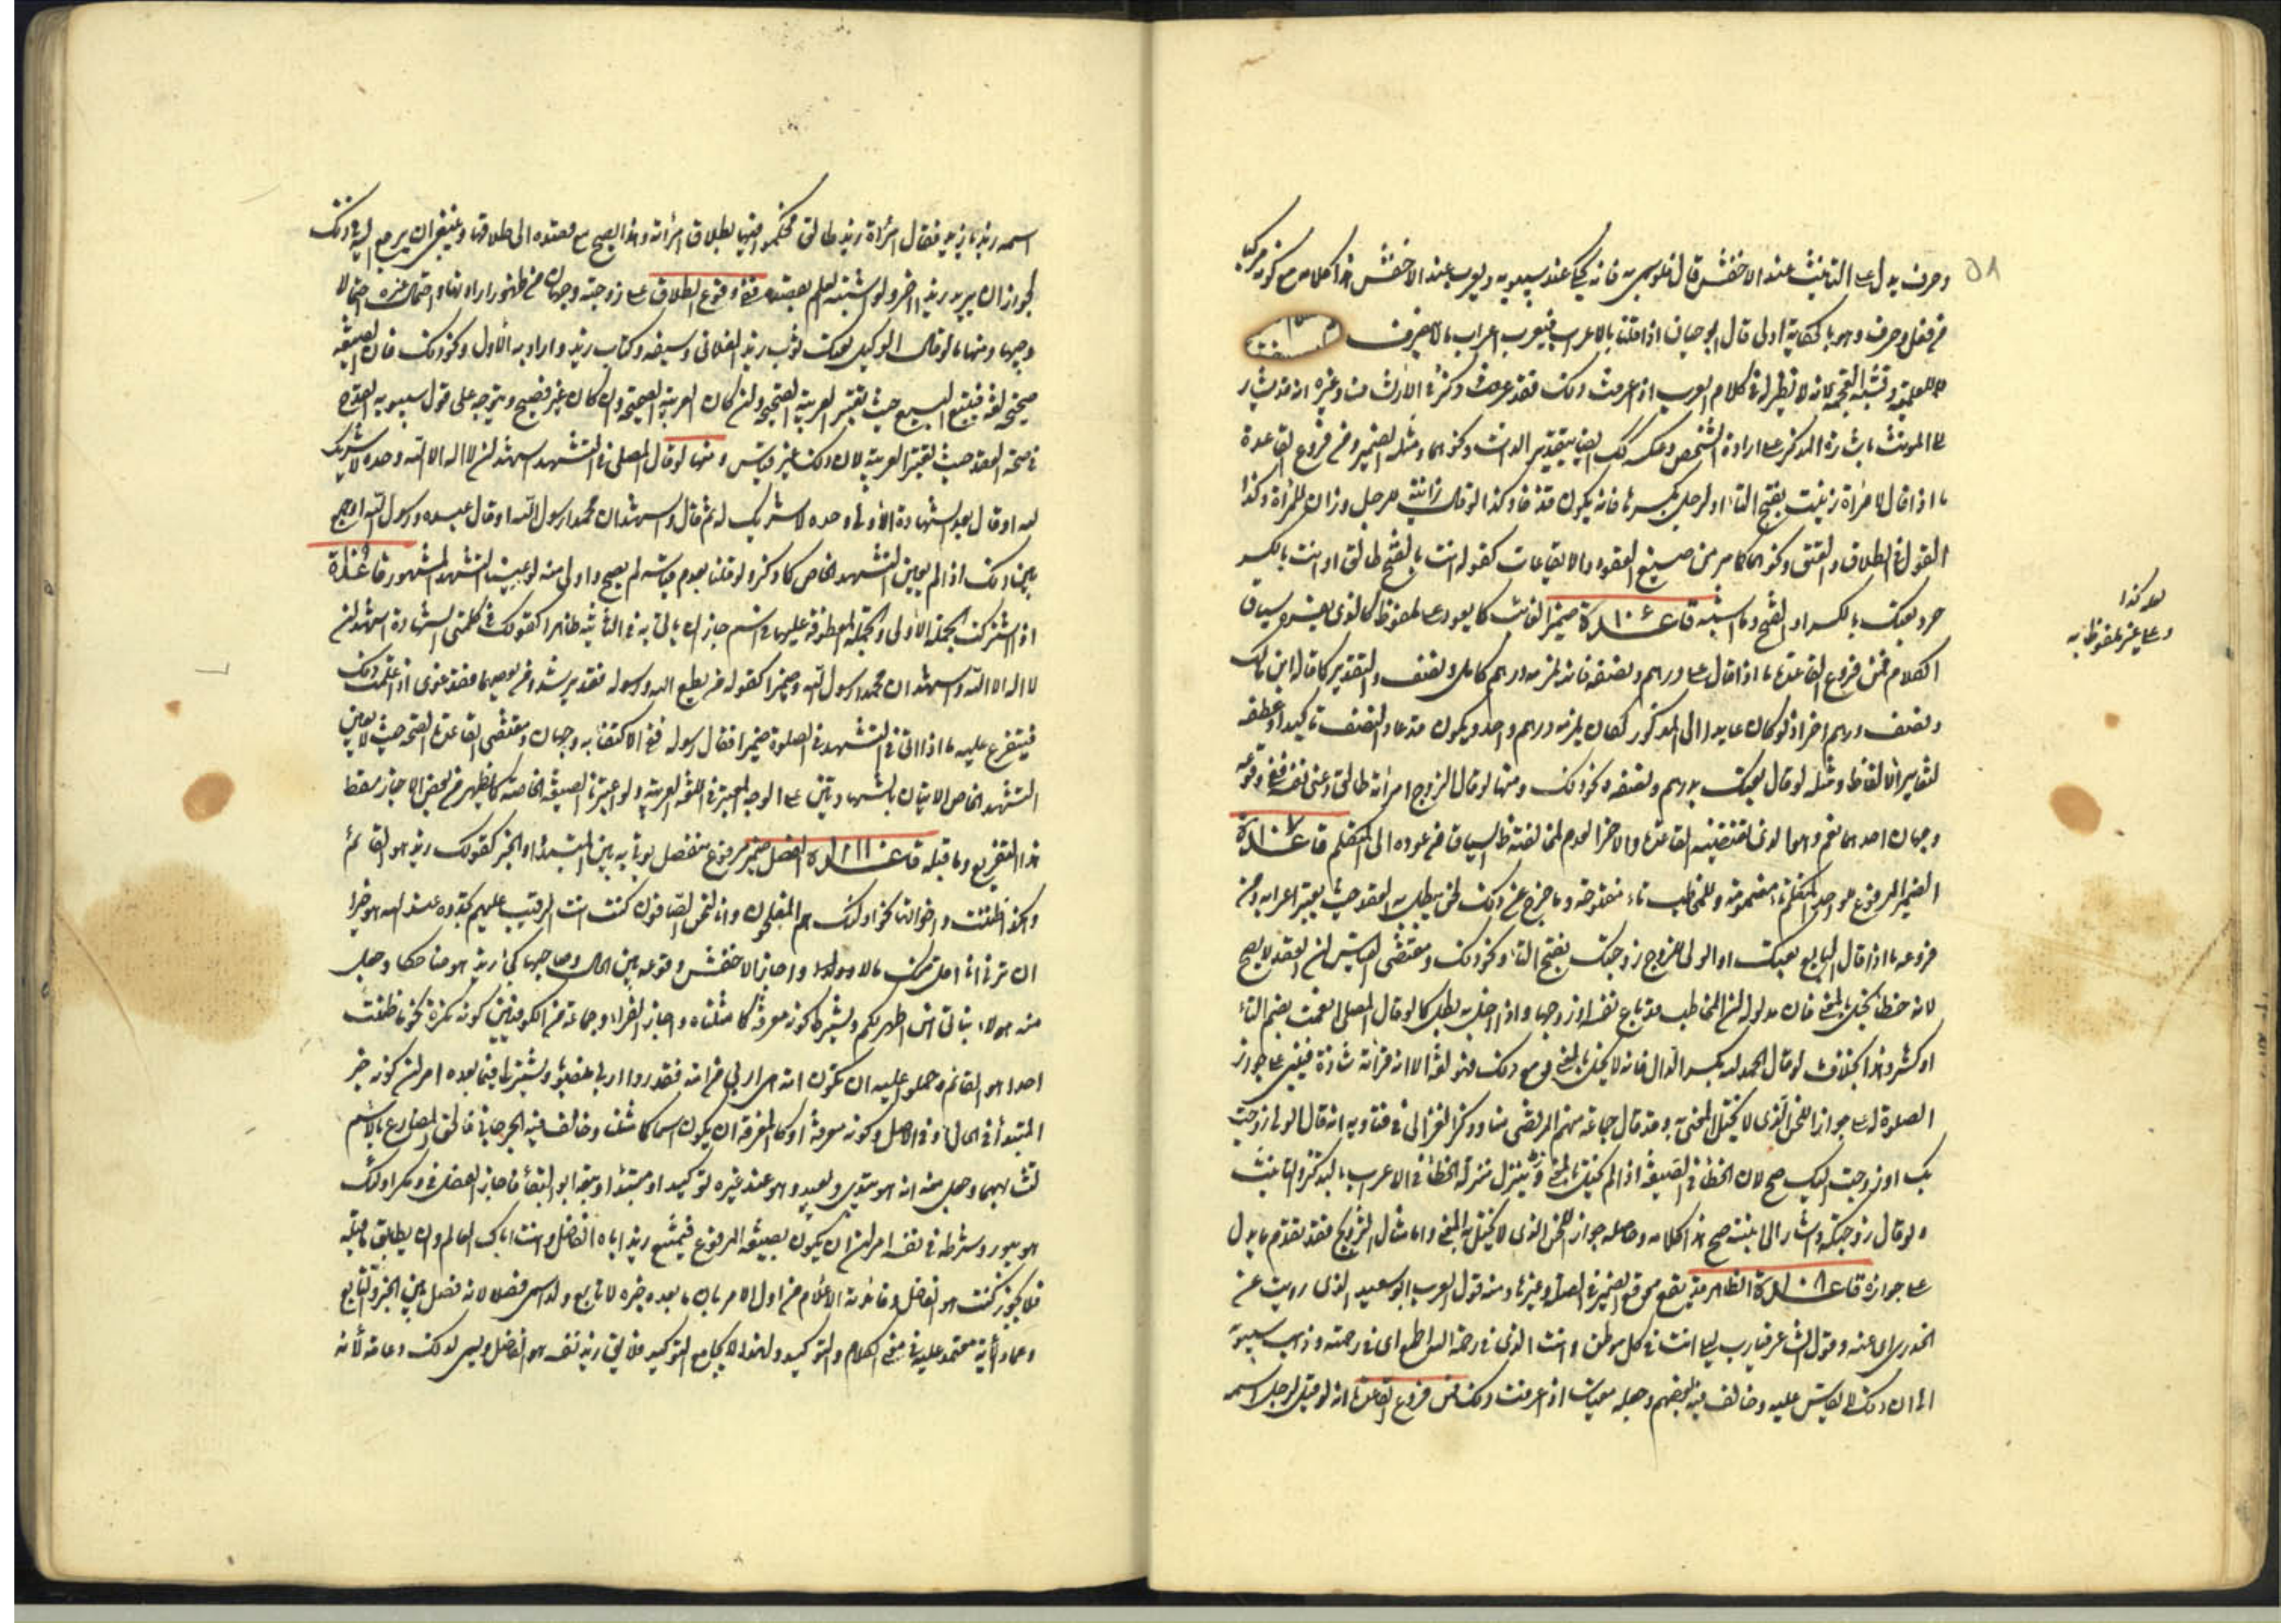 ٥٨
وحرف يدل على التانيث عند الاخفش فانه يحكى عند سيبويه ويعرب عند الاخفش هذا كلامه مع كونه مركبا
من فعل وحرف وهو بالحكاية اولى قال ابو حيان اذا قلنا بالاعراب فيعرب اعراب مالا ينصرف
للعلمية وشبه العجمة لانه لا نظير له في كلام العرب اذا عرفت ذلك فقد عرفت وغيره انه قد يشار
على المونث باشارة المذكر على ارادة الشخص وعكسه كذلك ايضا بتقدير الذات ونحوها ومثله الضمير ومن فروع القاعدة
ما اذا قال لامراة زنيت بفتح التاء او لرجل بكسرها فانه يكون قذفا وكذا لو قال زانية للرجل وزان للمراة وكذا
القول في الطلاق والعتق ونحوهما كما مر من صيغ العقود والايقاعات كقوله انت بالفتح طالق او انت بالكسر
حر وبعتك بالكسر او الفتح وما اشبه قاعدة ١٠٦ ضمير الغائب كما يعود على ملفوظ كالذي يفسره سياق
لعله كذا
وعلى غير ملفوظ به
الكلام فمن فروع القاعدة ما اذا قال على درهم ونصفه فانه يلزمه درهم كامل ونصف والتقدير كما قال ابن مالك
ونصف درهم اخر اذ لو كان عايدا الى المذكور لكان يلزمه درهم واحد ويكون قد اعاد النصف تاكيدا وعطفه
لتغاير الالفاظ ومثله لو قال بعتك بدرهم ونصفه ونحو ذلك ومنها لو قال الزوج امراته طالق وعنى نفسه ففي وقوعه
وجهان احدهما نعم وهو الذي اقتضته القاعدة والاخر العدم لمخالفته ظ السياق من عوده الى المتكلم قاعدة ١٠٧
الضمير المرفوع للواحد المتكلم تاء مضمومة وللمخاطب تاء مفتوحة وما خرج عن ذلك لحن يبطل به العقد حيث يعتبر اعرابه ومن
فروعه ما اذا قال البايع بعتك او الولي للزوج زوجتك بفتح التاء ونحو ذلك ومقتضى القياس ان العقد لا يصح
لانه خطا يخل بالمعنى فان مدلوله ان المخاطب قد باع نفسه او زوجها واذا اخل به بطل كما لو قال المصلى انعمت بضم التاء
او كسرها وهذا بخلاف لو قال الحمد لله بكسر الدال فانه لا يخل بالمعنى مع ذلك فهو لغة الا انه قراءة شاذة فينبنى على جواز
الصلوة له على جواز اللحن الذي لا يخل بالمعنى به وقد قال جماعة منهم المرتضى منا وذكر الغزالى في فتاويه انه قال الولى زوجت
بك او زوجت اليك صح لان الخطا في الصيغة اذا لم يخل بالمعنى ينزل منزلة الخطا في الاعراب بالتذكير والتانيث
ولو قال زوجتكه واشار الى ابنته صح هذا كلامه وحاصله جواز اللحن الذي لا يخل بالمعنى واما مثال التزويج فقد تقدم ما يدل
على جوازه قاعدة ١٠٨ الظاهر قد يقع موقع الضمير في الصلة وغيرها ومنه قول العرب ابو سعيد الذى رويت عن
الخدرى اى عنه وقول الشاعر فيا رب ليلى انت في كل موطن وانت الذى في رحمة الله اطمع اى في رحمته وذهب سيبويه
الى ان ذلك لا يقاس عليه وخالف فيه بعضهم وجعله مقيسا اذا عرفت ذلك فمن فروع القاعدة انه لو قيل لرجل اسمه
اسمه زيد يا زيد فقال امراة زيد طالق محكموا فيها بطلاق امراته وهذا يصح مع قصده الى طلاقها وينبغى ان يرجع اليه في ذلك
لجواز ان يريد زيدا اخر ولو اشتبه العلم بقصده ففي وقوع الطلاق على زوجته وجهان من ظهور ارادتها واحتمال غيره احتمالا
وجيها ومنها ما لو قال الوكيل بعت ثوب زيد الفلانى وسيفه وكتاب زيد واراد به الاول ونحو ذلك فان الصيغة
صحيحة لغة فيتبع البيع حيث تعتبر العربية الصحيحة وان كان العربية الصحيحة وان كان غير فصيح ويتوجه على قول سيبويه العدم
في صحة العقد حيث تعتبر العربية لان ذلك غير قياس ومنها لو قال المصلى في التشهد اشهد ان لا اله الا الله وحده لا شريك
له او قال بعد الشهادة الاولى وحده لا شريك له ثم قال واشهد ان محمدا رسول الله او قال عبده ورسول الله او جمع
بين ذلك اذا لم يعين التشهد الخاص كما ذكر ولو قلنا بعدم قياسه لم يصح واولى منه لو عينا التشهد المشهور قاعدة
اذا اشتركت الجملة الاولى والجملة المعطوفة عليها في اسم جاز ان يأتى به في الثانية ظاهرا كقولك في كلمتى الشهادة اشهد ان
لا اله الا الله واشهد ان محمدا رسول الله وضميرا كقوله من يطع الله ورسوله فقد يرشد ومن يعصهما فقد غوى اذا علمت ذلك
فيتفرع عليه ما اذا اتى في التشهد في الصلوة ضميرا فقال رسوله ففي الاكتفاء به وجهان ومقتضى القاعدة الصحة حيث لا يعين
التشهد الخاص لاتيان بالشهادتين على الوجه المعتبر في اللغة العربية ولو اعتبرنا الصيغة الخاصة كما يظهر من بعض الاخبار سقط
هذا التفريع وما قبله قاعدة ١١١ الفصل ضمير مرفوع منفصل يؤتى به بين المبتدا والخبر كقولك زيد هو القائم
وكذا ظننت واخواتها نحو اولئك هم المفلحون وانا لنحن الصافون كنت انت الرقيب عليهم تجدوه عند الله هو خيرا
ان ترنى انا اقل منك مالا وولدا واجاز الاخفش وقوعه بين الحال وصاحبها كجاء زيد هو ضاحكا وجعل
منه هؤلاء بناتى هن اطهر لكم ويشترط كونه معرفة كما مثلناه واجاز الفراء وجماعة من الكوفيين كونه نكرة نحو ما ظننت
احدا هو القائم وحملوا عليه ان تكون امة هى اربى من امة فقدروا اربى منصوبا ويشترط فيما بعده امران كونه خبر
المبتدأ في الحال او في الاصل وكونه معرفة او كالمعرفة ان يكون اسما كما مثلنا وخالف فيه الجرجانى فالحق المضارع بالاسم
لتشابههما وجعل منه انه هو يبدئ ويعيد وهو عند غيره توكيد او مبتدأ وتبعه ابو البقاء فاجاز الفصل في ومكر اولئك
هو يبور وشرطه في نفسه امران ان يكون بصيغة المرفوع فيمتنع زيد اياه الفاضل وانت اياك العالم وان يطابق ما قبله
فلا يجوز كنت هو الفاضل وفائدته الاعلام من اول الامر بان ما بعده خبر لا تابع ولهذا سمى فصلا لانه فصل بين الخبر والتابع
وعمادا لانه معتمد عليه في معنى الكلام والتوكيد ولهذا لا يجامع التوكيد فلا يقال زيد نفسه هو الفاضل وليس لذلك دعامة لانه